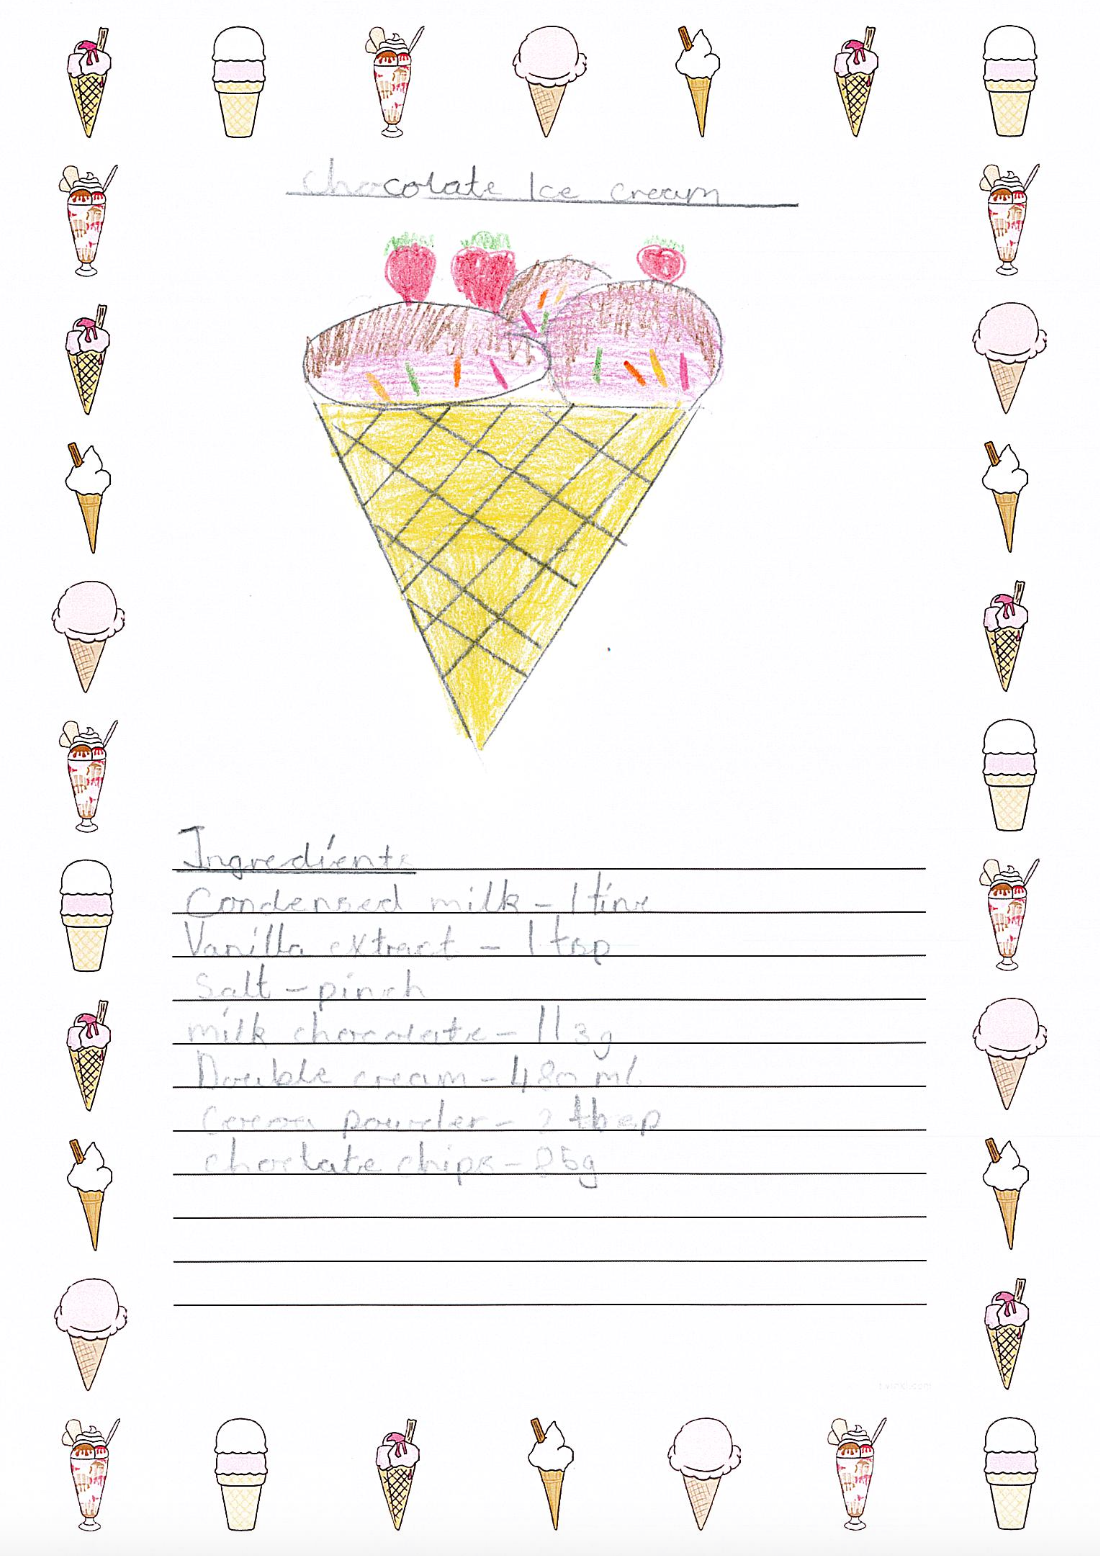 chocolate Ice cream
Ingredients
Condensed milk - 1 tin
Vanilla extract - 1 tsp
Salt - pinch
milk chocolate - 113g
Double cream - 480 ml
Cocoa powder - 2 tbsp
choclate chips - 85g